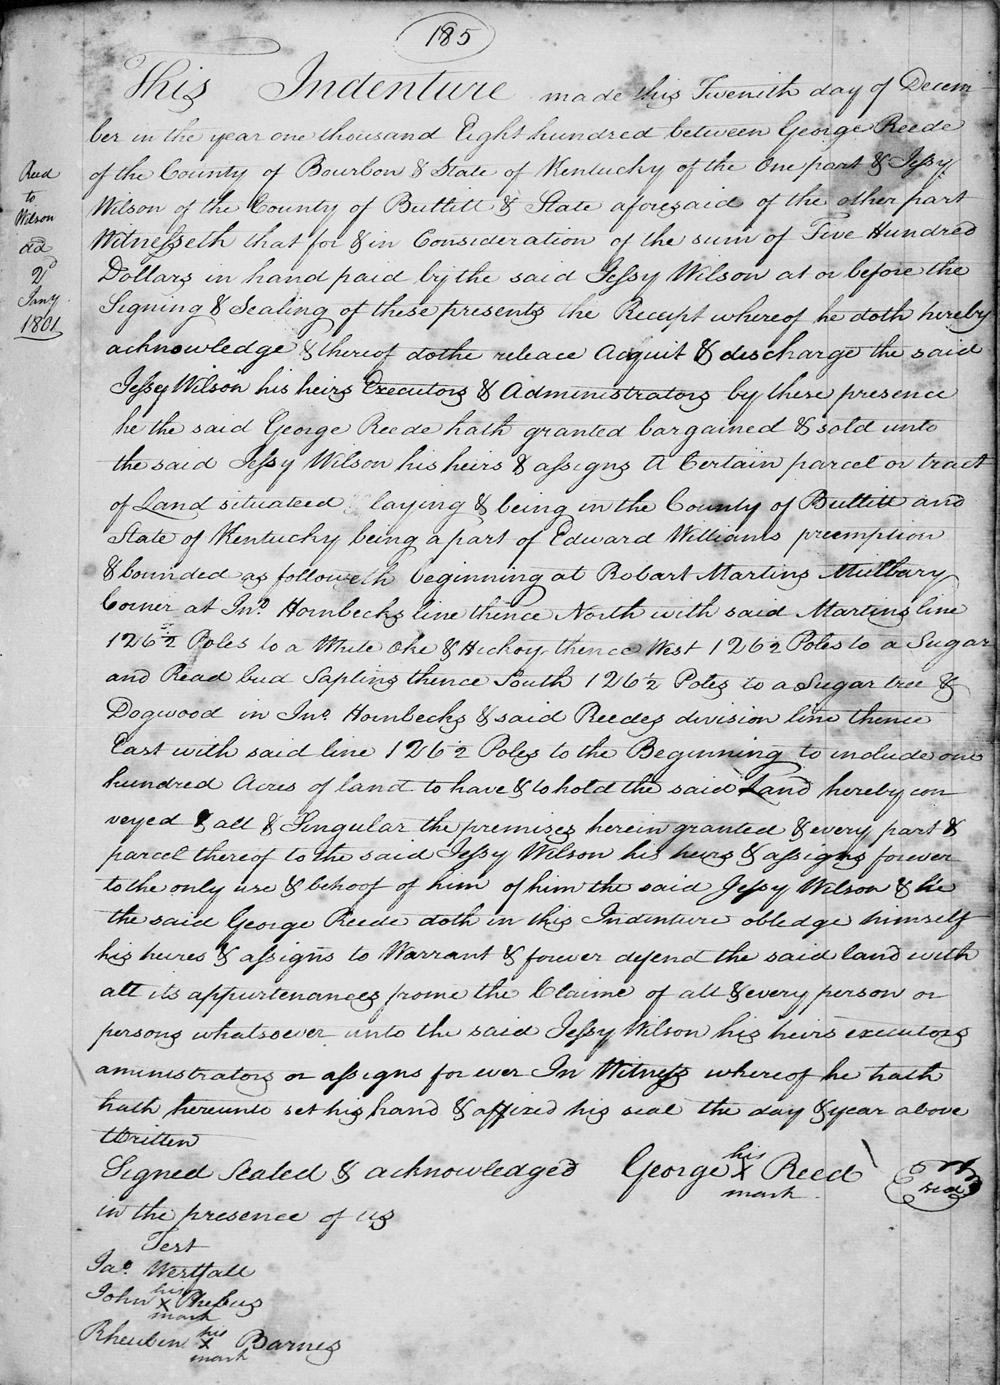 185
This Indenture made this Twenith day of Decem
ber in the year one thousand Eight hundred between George Reede
of the County of Bourbon & State of Kentucky of the One part & Jessy
Wilson of the County of Bullitt & State aforesaid of the other part
Witnesseth that for & in Consideration of the sum of Five Hundred
Dollars in hand paid by the said Jessy Wilson at or before the
Signing & Sealing of these presents the Recept whereof he doth hereby
acknowledge & thereof dothe releace acquit & discharge the said
Jessy Wilson his heirs Executors & Administrators by these presence
he the said George Reede hath granted bargained & sold unto
the said Jessy Wilson his heirs & assigns A Certain parcel or tract
of Land situateed laying & being in the County of Bullitt and
State of Kentucky being a part of Edward Williams preemption
& bounded as followeth beginning at Robart Martins Military
Corner at Jno. Hornbecks line thence North with said Martins line
126½ Poles to a White oke & Hickoy thence West 126½ Poles to a Sugar
and Read bud Sapling thence South 126½ Poles to a Sugar tree &
Dogwood in Jno. Hornbecks & said Reedes division line thence
East with said line 126½ Poles to the Beginning to include one
hundred Acres of land to have & to hold the said Land hereby con
veyed & all & Singular the premises herein granted & every part &
parcel thereof to the said Jessy Wilson his heirs & assigns forever
to the only use & behoof of him of him the said Jessy Wilson & he
the said George Reede doth in this Indenture obledge himself
his heires & assigns to Warrant & forever defend the said land with
all its appurtenances frome the Claime of all & every person or
persons whatsoever unto the said Jessy Wilson his heirs executors
aministrators or assigns for ever In Witness whereof he hath
hath hereunto set his hand & affixed his seal the day & year above
Written
Signed Sealed & acknowledged George his X mark Reed seal
in the presence of us
Test
Jas. Westfall
John his X mark Phebus
Rheuben his X mark Barnes
Reed
to
Wilson
2d
Jany
1801